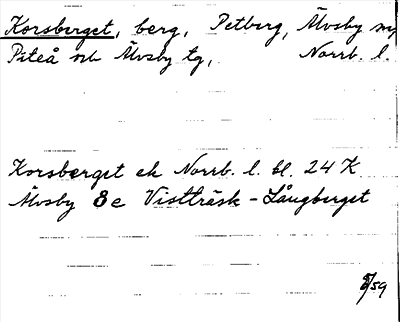 Korsberget, berg, Petberg, Älvsby sn,
Piteå och Älvsby tg, Norrb. l.
Korsberget ek Norrb. l. bl. 24 K
Älvsby 8 e Vistträsk - Långberget
8/59